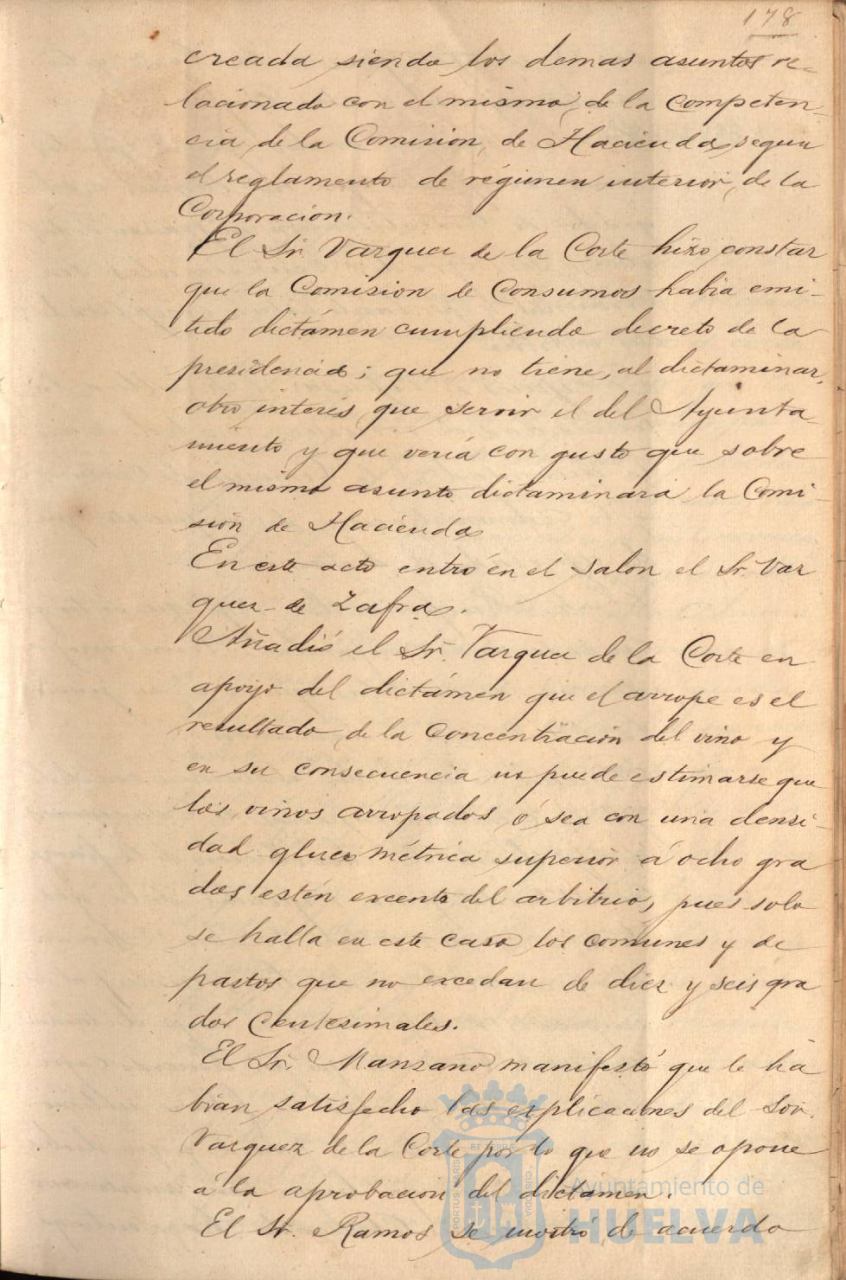 178
creada siendo los demas asuntos re-
lacionado con el mismo, de la competen-
cia de la Comision de Hacienda, segun
el reglamento de régimen interior de la
Corporacion.
El Sr. Vazquez de la Corte hizo constar
que la Comision de Consumos habia emi-
tido dictámen cumpliendo decreto de la
presidencia; que no tiene, al dictaminar,
otro interés que servir el del Ayunta-
miento y que veria con gusto que sobre
el mismo asunto dictaminara la Comi-
sion de Hacienda
En este acto entró en el salon el Sr. Vaz
quez de Zafra.
Añadió el Sr. Vazquez de la Corte en
apoyo del dictámen que el arrope es el
resultado de la concentracion del vino y
en su consecuencia no puede estimarse que
los vinos arropados ó sea con una densi-
dad glucométrica superior á ocho gra
dos estén excento del arbitrio, pues solo
se halla en este caso los comunes y de
pastos que no excedan de diez y seis gra
dos centesimales.
El Sr. Manzano manifestó que le ha
bian satisfecho las explicaciones del Sor.
Vazquez de la Corte por lo que no se opone
á la aprobacion del dictamen.
El Sr. Ramos se mostró de acuerdo
Ayuntamiento de
HUELVA